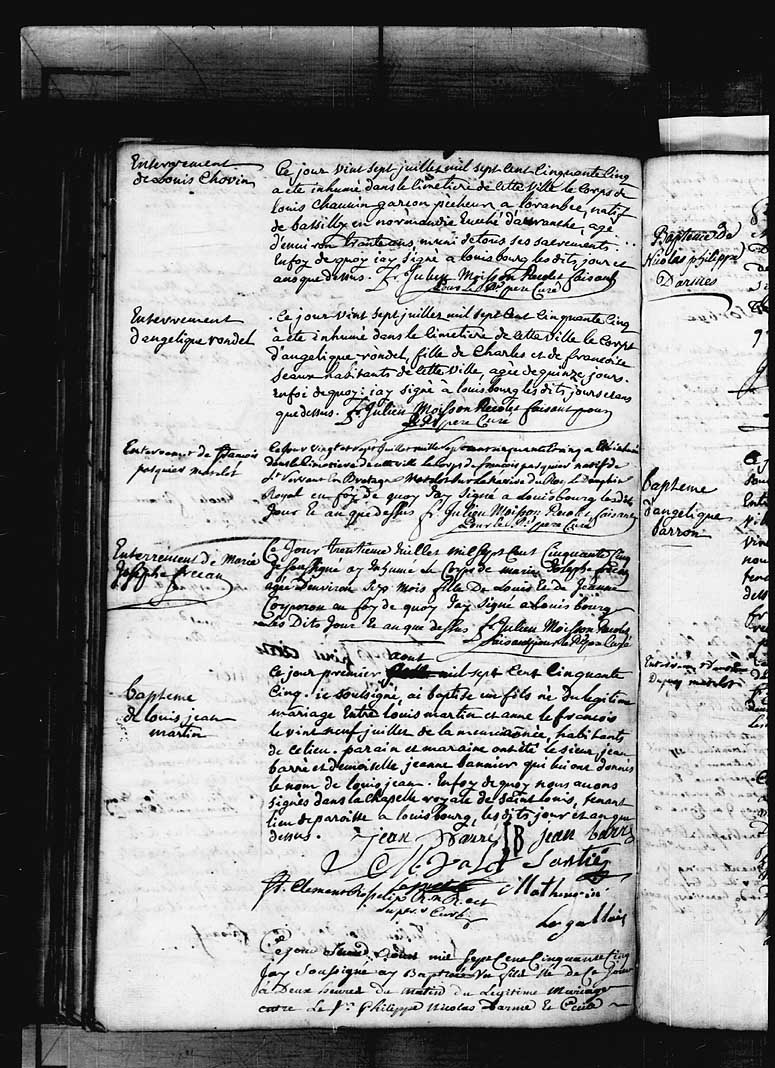 Enterrement
de Louis Chovin
Ce jour vint sept juillet mil sept cent cinquante cinq
a ete inhumé dans le cimetiere de cette ville le corps de
louis chauvin garçon pecheur a loranbec, natif
de bassilly en normandie Eveché d'avranche, agé
d'environ trante ans, muni de tous ses sacrements
En foy de quoy jay signé a louisbourg les dits jour et
an que dessus. fr. Julien Moisson Recolet faisant
pour le Rd pere Curé
Enterrement
d'angelique rondel
. Ce jour vint sept juillet mil sept cent cinquante cinq
a ete inhumé dans le cimetiere de cette ville le corps
d'angelique rondel, fille de Charles et de francoise
seaux habitants de cette ville, agée de quinze jours.
Enfoi de quoy jay signé à louisbourg les dits jours et ans
que dessus. fr Julien Moisson Recolet faisant pour
le Rd pere Curé
Enterrement de francois
pasquier matelot
Ce Jour vingt et sept Juillet mille sept cent cinquante cinq a Eté inhumé
dans le Cimetiere de cette ville le Corps de francois pasquier natif de
St Servant En Bretagne Matelot sur le navire du Roy Le Dauphin
Royal en foy de quoy Jay Signé a Louisbourg les dits
Jour Et an que dessus fr Julien Moisson Recolet faisant
pour le Rd pere Curé
Enterrement de Marie
Josephe frecan
Ce Jour trentieme Juilles mil sept cent Cinquante cinq
Je soussigné ay Inhumé Le Corps de marie Josephe
agée D'environ Six Mois fille De Louis Et de Jeanne
Corporon en foy de quoy Jay Signé a Louisbourg
Les Dits Jour Et an que dessus fr Julien Moisson Recolet
faisant pour le Rd pere Curé
aout
Ce jour premier mil sept cent cinquante
Bapteme
de louis jean
martin
cinq. je soussigné, ai baptisé un fils né du legitime
mariage Entre louis martin et anne le francois
le vint neuf juillet de la meme année, habitants
de ce lieu. parain et maraine ont été le sieur jean
barré et demoiselle jeanne bannier qui lui ont donné
le nom de louis jean. En foy de quoy nous avons
signés dans la chapelle royale de saint louis, tenant
lieu de paroisse a louisbourg, les dits jour et an que
dessus.
jean Barre JB jean barre
fr. Clement Rosselin
super. Curé
Mathurin
Le gallais
Ce jour Second d'aout mil sept Cent Cinquante cinq
Jay Soussigné ay Baptisé un fils Né de ce Jour
a Deux heures du matin du Legitime mariage
entre Le Sr. Philippe Nicolas Darme Et Cecile
Bapteme de
Nicolas philippe
Darmes
bapteme
d'angelique
barron
Enterrement
Dupuy matelot